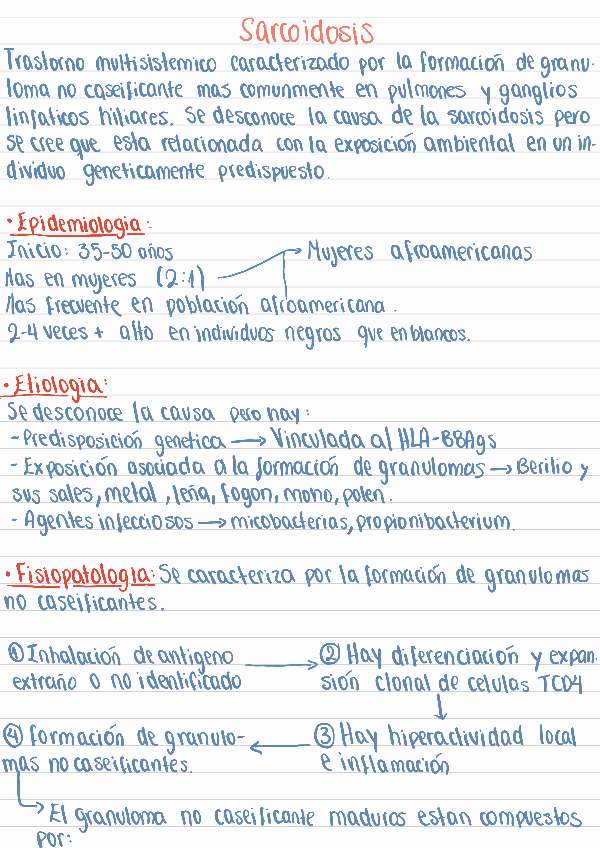 Sarcoidosis
Trastorno multisistemico caracterizado por la formación de granu-
loma no caseificante mas comunmente en pulmones y ganglios
linfaticos hiliares. Se desconoce la causa de la sarcoidosis pero
se cree que esta relacionada con la exposición ambiental en un in-
dividuo geneticamente predispuesto.
• Epidemiologia:
Inicio: 35-50 años
Mas en mujeres (2:1) → Mujeres afroamericanas
Mas frecuente en población afroamericana.
2-4 veces + alto en individuos negros que en blancos.
• Etiologia:
Se desconoce la causa pero hay:
- Predisposición genetica → Vinculada al HLA-B8Ags
- Exposición asociada a la formación de granulomas → Berilio y
sus sales, metal, leña, fogon, mono, polen.
- Agentes infecciosos → micobacterias, propionibacterium.
• Fisiopatologia: Se caracteriza por la formación de granulomas
no caseificantes.
① Inhalación de antigeno
extraño o no identificado
② Hay diferenciación y expan-
sión clonal de celulas TCD4
③ Hay hiperactividad local
e inflamación
④ formación de granulo-
mas no caseificantes.
El granuloma no caseificante maduros estan compuestos
por: